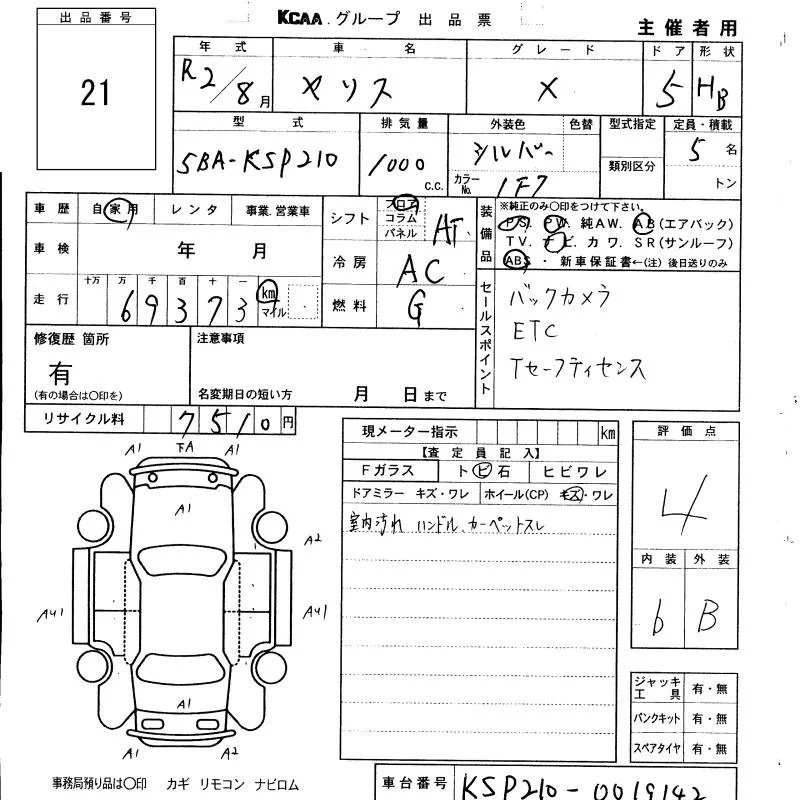 出品番号
21
KCAA.グループ 出品票
主催者用
年式 車名 グレード ドア 形状
R2/8月 ヤリス X 5 HB
型式 排気量 外装色 色替 型式指定 定員・積載
5BA-KSP210 1000 c.c. シルバー 5名
カラーNo. 1F7 類別区分 トン
車歴 自家用 レンタ 事業.営業車
車検 年 月
走行 十万 万 千 百 十 一
69373 km マイル
シフト フロア コラム パネル AT
冷房 AC
燃料 G
装備品
※純正のみ〇印をつけて下さい。
PS. PW. 純AW. AB(エアバック)
TV. ナビ. カワ. SR(サンルーフ)
ABS・新車保証書←(注)後日送りのみ
セールスポイント
バックカメラ
ETC
Tセーフティセンス
修復歴 箇所
有
(有の場合は〇印を)
注意事項
名変期日の短い方 月 日まで
リサイクル料 7510円
現メーター指示 km
【査定員記入】
Fガラス トビ石 ヒビワレ
ドアミラー キズ・ワレ ホイール(CP) キズ・ワレ
室内汚れ ハンドル.カーペットスレ
評価点
4
内装 外装
6 B
A1 下A A1
A1
A2
AU1 AU1
A1
A1 A2
ジャッキ工具 有・無
パンクキット 有・無
スペアタイヤ 有・無
事務局預り品は〇印 カギ リモコン ナビロム
車台番号 KSP210-0019142